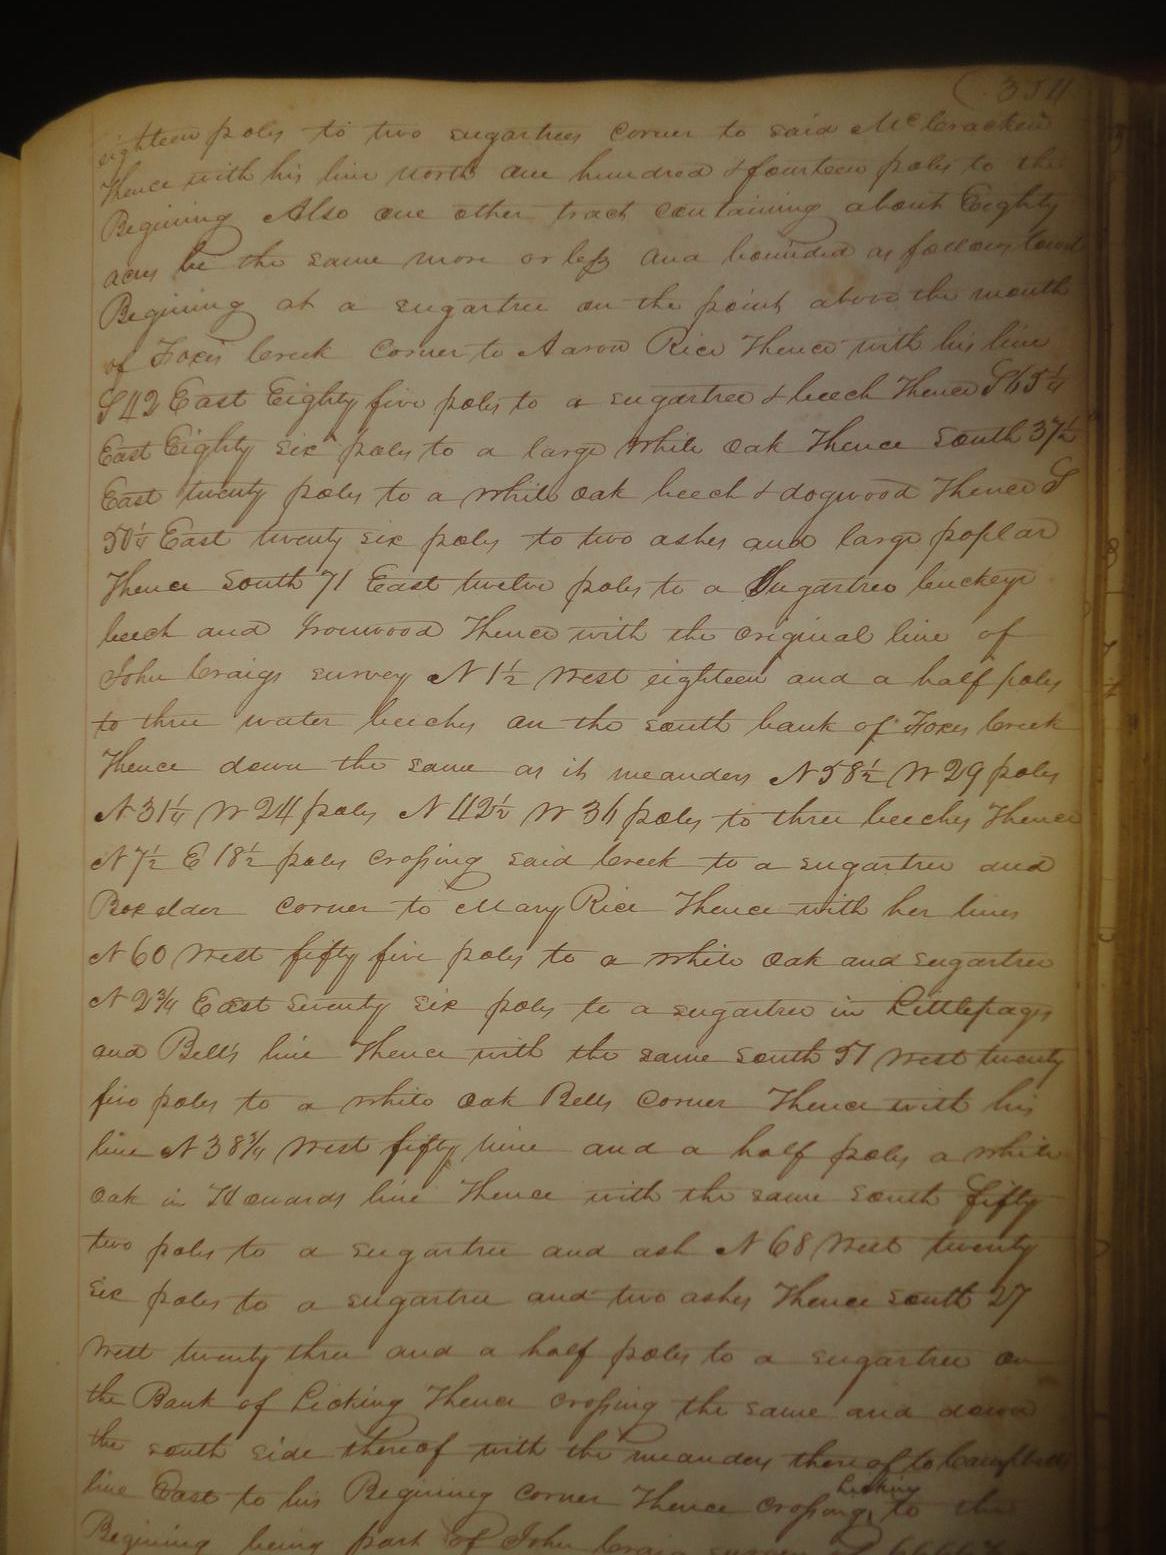 354
eighteen poles to two sugartrees corner to said McCracken
Thence with his line north one hundred & fourteen poles to the
Begining Also one other tract containing about Eighty
acres be the same more or less and bounded as follows towit
Begining at a sugartree on the point above the mouth
of Foxes Creek corner to Aaron Rice Thence with his line
S 42 East Eighty five poles to a sugartree & beech Thence S 65¼
East Eighty six poles to a large white oak Thence south 37½
East twenty poles to a white oak beech & dogwood Thence S
50¼ East twenty six poles to two ashes and large poplar
Thence south 71 East twelve poles to a Sugartree buckeye
beech and Ironwood Thence with the original line of
John Craigs survey N 1½ West eighteen and a half poles
to three water beeches on the south bank of Foxes Creek
Thence down the same as it meanders N 58½ W 29 poles
N 31¼ W 24 poles N 42½ W 36 poles to three beeches Thence
N 7½ E 18½ poles crossing said Creek to a sugartree and
Boxelder corner to Mary Rice Thence with her lines
N 60 West fifty five poles to a white oak and sugartree
N 2¾ East seventy six poles to a sugartree in Littlepages
and Bells line Thence with the same south 51 West twenty
five poles to a white oak Bells corner Thence with his
line N 38¾ West fifty nine and a half poles a white
oak in Howards line Thence with the same south fifty
two poles to a sugartree and ash N 68 West twenty
six poles to a sugartree and two ashes Thence south 27
West twenty three and a half poles to a sugartree on
the Bank of Licking Thence crossing the same and down
the south side thereof with the meanders thereof to Campbells
line East to his Begining corner Thence crossing Licking to the
Begining being part of John Craigs survey of